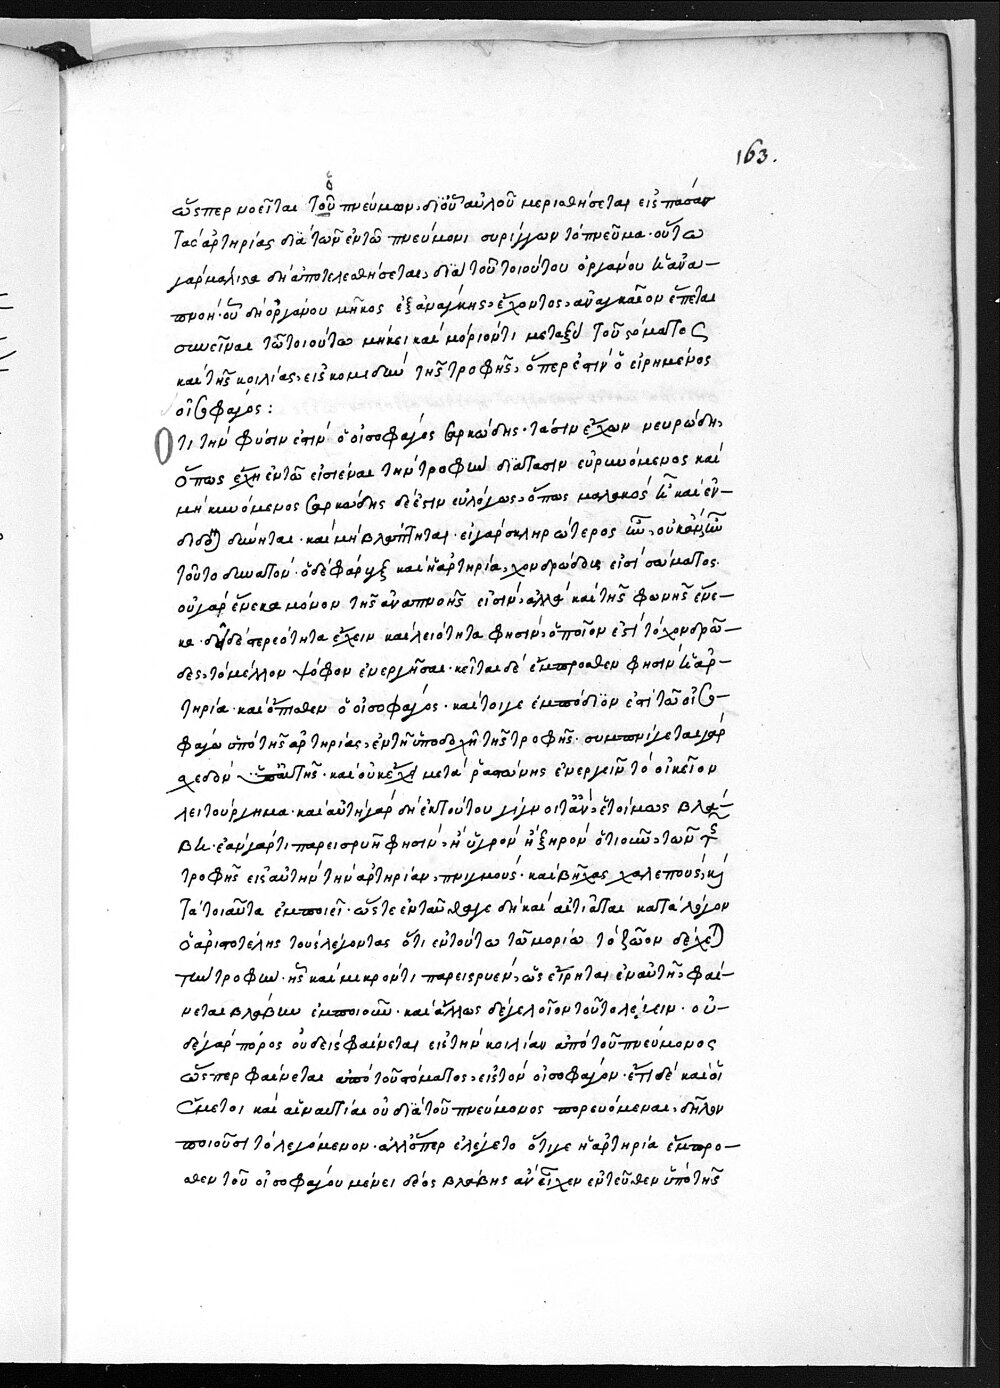 163.
ὥσπερ νοεῖται τοῦ ὁ πνεύμων, δι' οὗ αὐλοῦ μερισθήσεται εἰς πάσας
τὰς ἀρτηρίας διὰ τῶν ἐν τῷ πνεύμονι συρίγγων τὸ πνεῦμα· οὕτω
γὰρ μάλιστα δὴ ἀποτελεσθήσεται, διὰ τοῦ τοιούτου ὀργάνου ἡ ἀνα-
πνοή· οὗ δὴ ὀργάνου μῆκος ἐξ ἀνάγκης, ἔχοντος, ἀναγκαῖον ἕπεται
συνεῖναι τῷ τοιούτῳ μήκει καὶ μόριόν τι μεταξὺ τοῦ στόματος
καὶ τῆς κοιλίας, εἰς κομιδὴν τῆς τροφῆς, ὅπερ ἐστὶν ὁ εἰρημένος
οἰσοφάγος:
Ὅτι τὴν φύσιν ἐστὶν ὁ οἰσοφάγος σαρκώδης· τάσιν ἔχων νευρώδη,
ὅπως ἔχῃ ἐν τῷ εἰσιέναι τὴν τροφὴν διάτασιν εὐρυνόμενος καὶ
μηκυνόμενος σαρκώδης δέ ἐστιν εὐλόγως, ὅπως μαλακὸς ᾖ καὶ ἐν-
διδόναι δύνηται· καὶ μὴ βλάπτηται· εἰ γὰρ σκληρώτερος ἦν, οὐκ ἂν ἦν
τοῦτο δυνατόν· ὁ δὲ φάρυγξ καὶ ἡ ἀρτηρία, χονδρώδους εἰσὶ σώματος.
οὐ γὰρ ἕνεκα μόνον τῆς ἀναπνοῆς εἰσὶν, ἀλλὰ καὶ τῆς φωνῆς ἕνε-
κα· δεῖ δὲ στερεότητα ἔχειν καὶ λειότητα φησὶν, ὁποῖον ἐστὶ τὸ χονδρῶ-
δες, τὸ μέλλον ψόφον ἐνεργῆσαι· κεῖται δὲ ἔμπροσθεν φησὶν ἡ ἀρ-
τηρία· καὶ ὄπισθεν ὁ οἰσοφάγος· καίτοιγε ἐμπόδιον ἐστὶ τῷ οἰσο-
φάγῳ ὑπὸ τῆς ἀρτηρίας, ἐν τῇ ὑποδοχῇ τῆς τροφῆς· συμπνίγεται γὰρ
σχεδὸν ὑπ' αὐτῆς· καὶ οὐκ ἔχει μετὰ ῥαστώνης ἐνεργεῖν τὸ οἰκεῖον
λειτούργημα· καὶ αὐτὴ γὰρ δὴ ἐκ τούτου γίγνοιτ' ἂν, ἑτοίμως βλά-
βη· ἐὰν γάρ τι παρεισρυῇ φησὶν, ἢ ὑγρὸν ἢ ξηρὸν ὁτιοῦν, τῶν τῆς
τροφῆς εἰς αὐτὴν τὴν ἀρτηρίαν, πνιγμούς· καὶ βῆχας χαλεποὺς, καὶ
τὰ τοιαῦτα ἐμποιεῖ· ὥστε ἐνταῦθάγε δὴ καὶ αἰτιᾶται κατὰ λόγον
ὁ ἀριστοτέλης τοὺς λέγοντας ὅτι ἐν τούτῳ τῷ μορίῳ τὸ ζῶον δέχεται
τὴν τροφήν· ἧς καὶ μικρόν τι παρεισρυὲν, ὡς εἴρηται ἐν αὐτῇ, φαί-
νεται βλάβην ἐμποιοῦν· καὶ ἄλλως δὲ γελοῖον τοῦτο λέγειν· οὐ-
δὲ γὰρ πόρος οὐδεὶς φαίνεται εἰς τὴν κοιλίαν ἀπὸ τοῦ πνεύμονος
ὥσπερ φαίνεται ἀπὸ τοῦ στόματος, εἰς τὸν οἰσοφάγον· ἔτι δὲ καὶ οἱ
ἔμετοι καὶ αἱ ναυτίαι οὐ διὰ τοῦ πνεύμονος πορευόμεναι, δῆλον
ποιοῦσι τὸ λεγόμενον· ἀλλ' ὅπερ ἐλέγετο ὅτιγε ἡ ἀρτηρία ἔμπρο-
σθεν τοῦ οἰσοφάγου μένει δέος βλάβης ἂν εἶχεν ἐντεῦθεν ὑπὸ τῆς